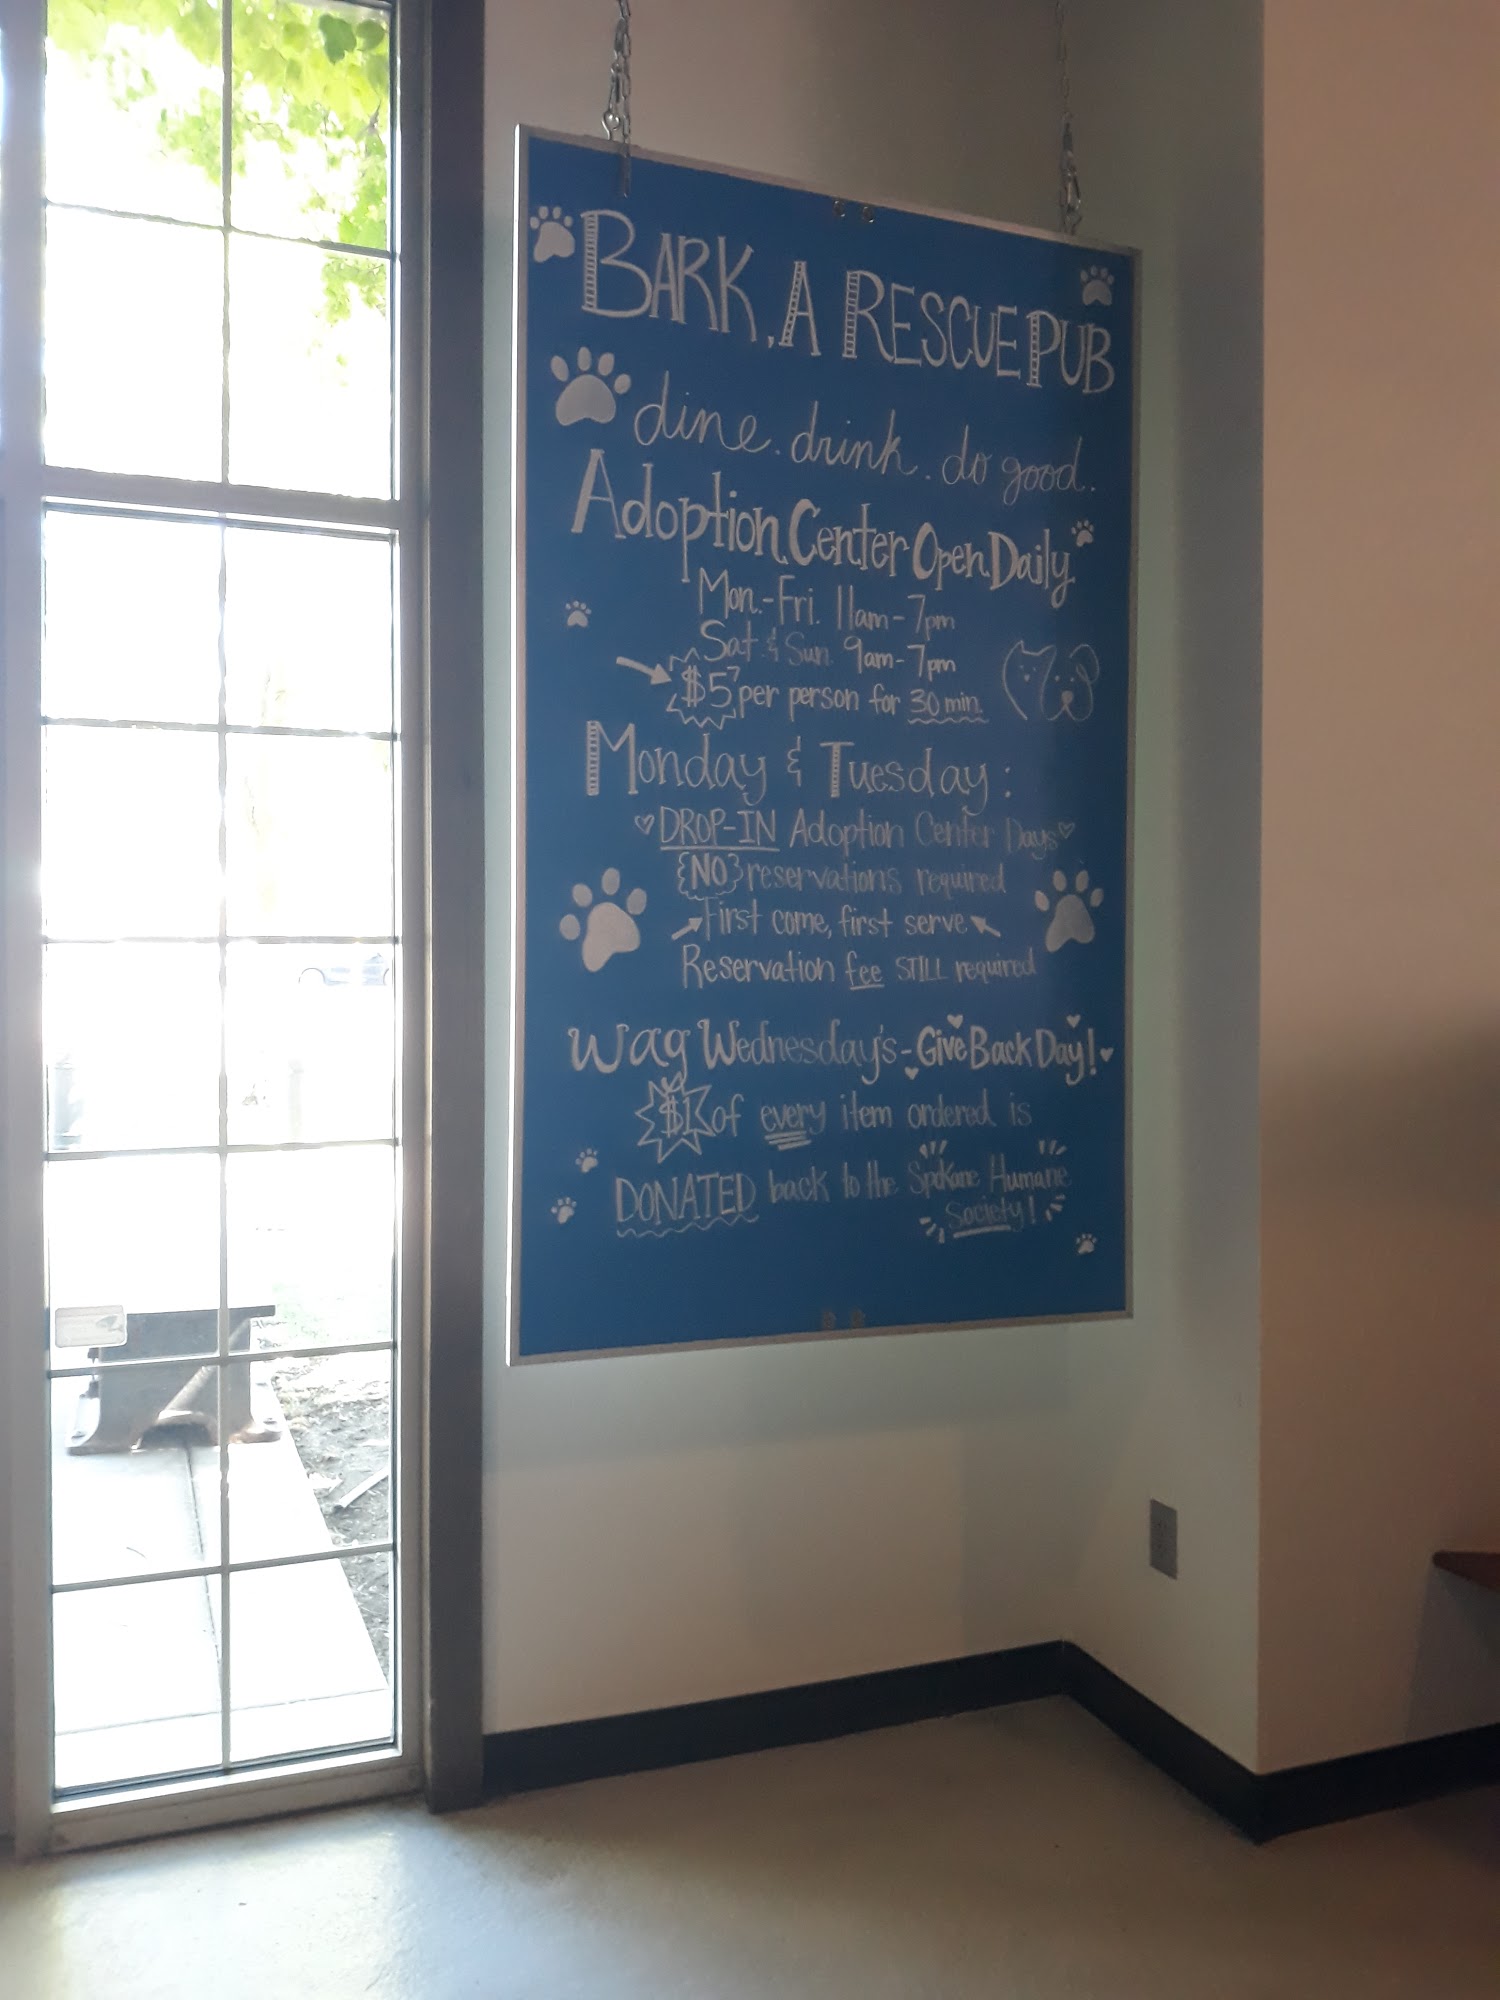 BARK, A RESCUE PUB
dine. drink. do good.
Adoption Center Open Daily
Mon.-Fri. 11am-7pm
Sat. & Sun. 9am-7pm
$5 per person for 30 min.
Monday & Tuesday:
DROP-IN Adoption Center Days
{NO} reservations required
First come, first serve
Reservation fee STILL required
Wag Wednesday's - Give Back Day!
$1 of every item ordered is
DONATED back to the Spokane Humane
Society!